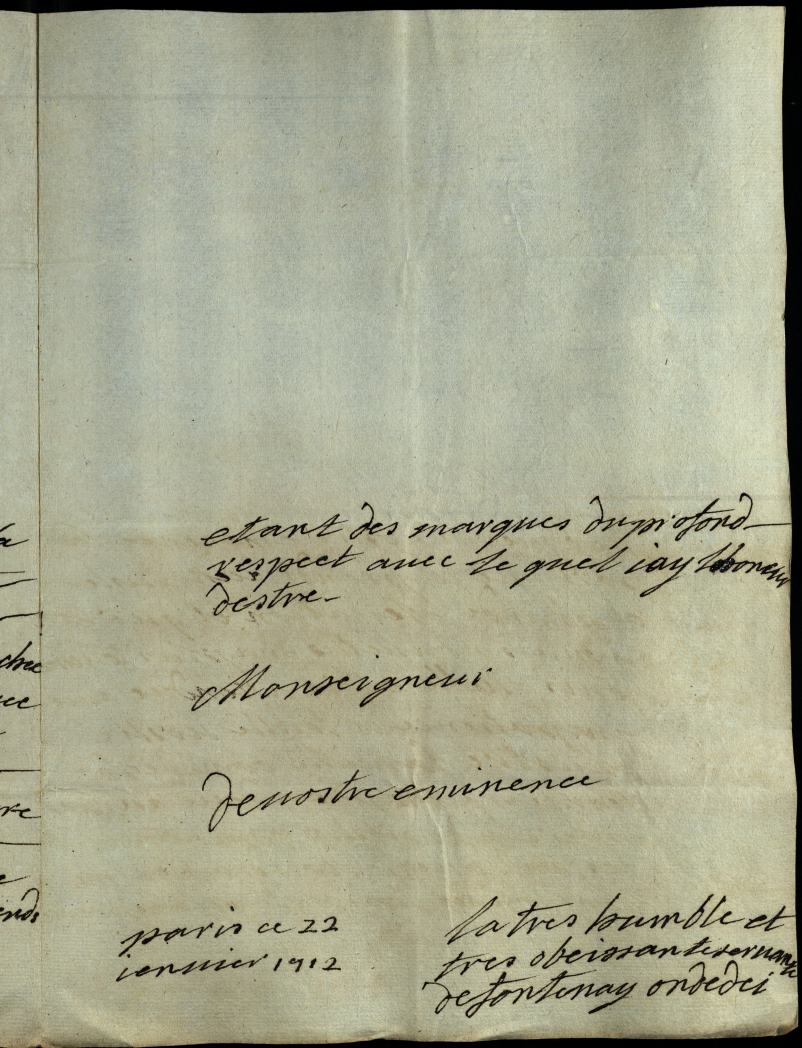 etant des marques du profond
respect avec le quel iay lhoneur
destre
Monseigneur
de vostre eminence
paris ce 22
ienuier 1712
la tres humble et
tres obeissante seruante
de fontenay ondedei